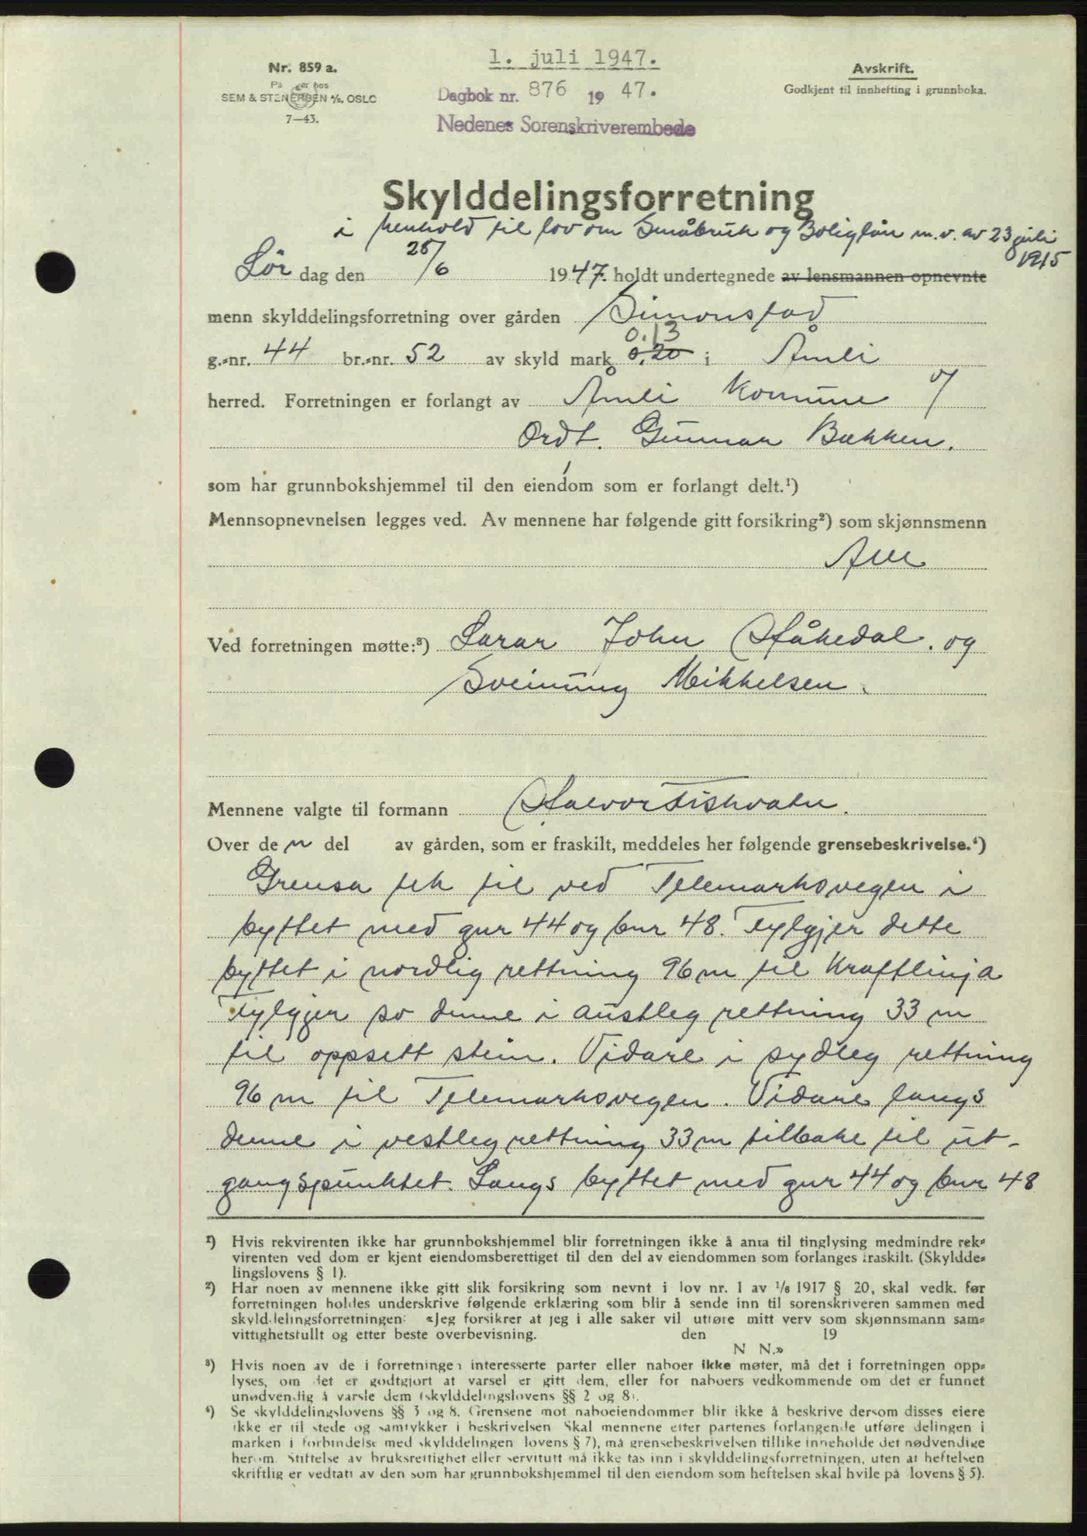 1. juli 1947.
Nr. 859 a.
SEM & STENERSEN A/S, OSLO
7—43.
Dagbok nr. 876 19 47.
Nedenes Sorenskriverembede
Avskrift.
Godkjent til innhefting i grunnboka.
Skylddelingsforretning
i henhold til lov om Småbruk og Boliglån m.v. av 23 juli 1915
Lör dag den 28/6 1947. holdt undertegnede av lensmannen opnevnte
menn skylddelingsforretning over gården Simonstad
0.13
g.-nr. 44 br.-nr. 52 av skyld mark 0,20 i Åmli
herred. Forretningen er forlangt av Åmli Komune v/
Ordf. Gunnar Bakken.
som har grunnbokshjemmel til den eiendom som er forlangt delt.¹)
Mennsopnevnelsen legges ved. Av mennene har følgende gitt forsikring²) som skjønnsmenn
Alle
Ved forretningen møtte:³) John Håkedal. og
Sveinung Mikkelsen.
Mennene valgte til formann Halvor Fiskvatn.
Over de n del av gården, som er fraskilt, meddeles her følgende grensebeskrivelse.⁴)
Grensa tek til ved Telemarksvegen i
byttet med gnr 44 og bnr 48. Fylgjer dette
byttet i nordlig rettning 96 m til Kraftlinja
Fylgjer so denne i austleg rettning 33 m
til oppsett stein. Vidare i sydleg rettning
96 m til Telemarksvegen. Vidare langs
denne i vestleg rettning 33 m tilbake til ut-
gangspunktet. Langs byttet med gnr 44 og bnr 48
¹) Hvis rekvirenten ikke har grunnbokshjemmel blir forretningen ikke å anta til tinglysing medmindre rek-
virenten ved dom er kjent eiendomsberettiget til den del av eiendommen som forlanges fraskilt. (Skyldde-
lingslovens § 1).
²) Har noen av mennene ikke gitt slik forsikring som nevnt i lov nr. 1 av 1/6 1917 § 20, skal vedk. før
forretningen holdes underskrive følgende erklæring som blir å sende inn til sorenskriveren sammen med
skylddelingsforretningen: «Jeg forsikrer at jeg i alle saker vil utføre mitt verv som skjønnsmann sam-
vittighetsfullt og etter beste overbevisning. den 19
N N.»
³) Hvis noen av de i forretningen interesserte parter eller naboer ikke møter, må det i forretningen opp-
lyses, om det er godtgjort at varsel er gitt dem, eller for naboers vedkommende om det er funnet
unødvendig å varsle dem (skylddelingslovens §§ 2 og 8).
⁴) Se skylddelingslovens §§ 3 og 8. Grensene mot naboeiendommer blir ikke å beskrive dersom disses eiere
ikke er til stede og samtykker i beskrivelsen Skal mennene etter partenes forlangende utføre delingen i
marken i forbindelse med skylddelingen lovens § 7), må grensebeskrivelsen tillike inneholde det nødvendige
herom. Stiftelse av bruksrettighet eller servitutt må ikke tas inn i skylddelingsforretningen, uten at heftelsen
skriftlig er vedtatt av den som har grunnbokshjemmel til den eiendom som heftelsen skal hvile på lovens § 5).